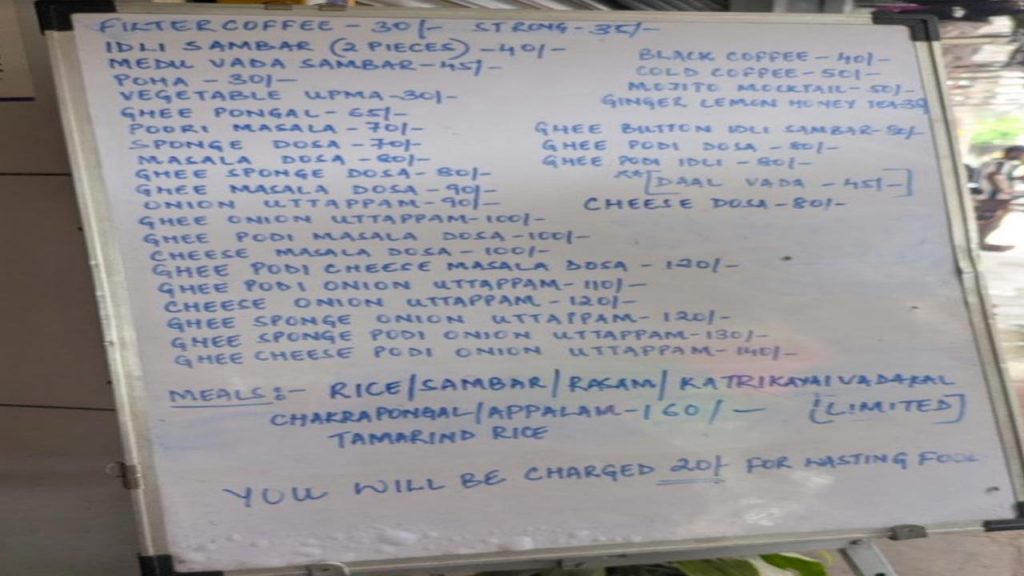 FILTER COFFEE - 30/- STRONG - 35/-
IDLI SAMBAR (2 PIECES) - 40/-
MEDU VADA SAMBAR - 45/-
POHA - 30/-
VEGETABLE UPMA - 30/-
GHEE PONGAL - 65/-
POORI MASALA - 70/-
SPONGE DOSA - 70/-
MASALA DOSA - 80/-
GHEE SPONGE DOSA - 80/-
GHEE MASALA DOSA - 90/-
ONION UTTAPPAM - 90/-
GHEE ONION UTTAPPAM - 100/-
GHEE PODI MASALA DOSA - 100/-
CHEESE MASALA DOSA - 100/-
GHEE PODI CHEESE MASALA DOSA - 120/-
GHEE PODI ONION UTTAPPAM - 110/-
CHEESE ONION UTTAPPAM - 120/-
GHEE SPONGE ONION UTTAPPAM - 120/-
GHEE SPONGE PODI ONION UTTAPPAM - 130/-
GHEE CHEESE PODI ONION UTTAPPAM - 140/-
BLACK COFFEE - 40/-
COLD COFFEE - 50/-
MOJITO MOCKTAIL - 50/-
GINGER LEMON HONEY TEA - 30
GHEE BUTTON IDLI SAMBAR - 80/-
GHEE PODI DOSA - 80/-
GHEE PODI IDLI - 80/-
[DAAL VADA - 45/-]
CHEESE DOSA - 80/-
MEALS :- RICE/SAMBAR/RASAM/KATRIKAYAI VADAKAL
CHAKRAPONGAL/APPALAM - 160/- [LIMITED]
TAMARIND RICE
YOU WILL BE CHARGED 20/- FOR WASTING FOOD